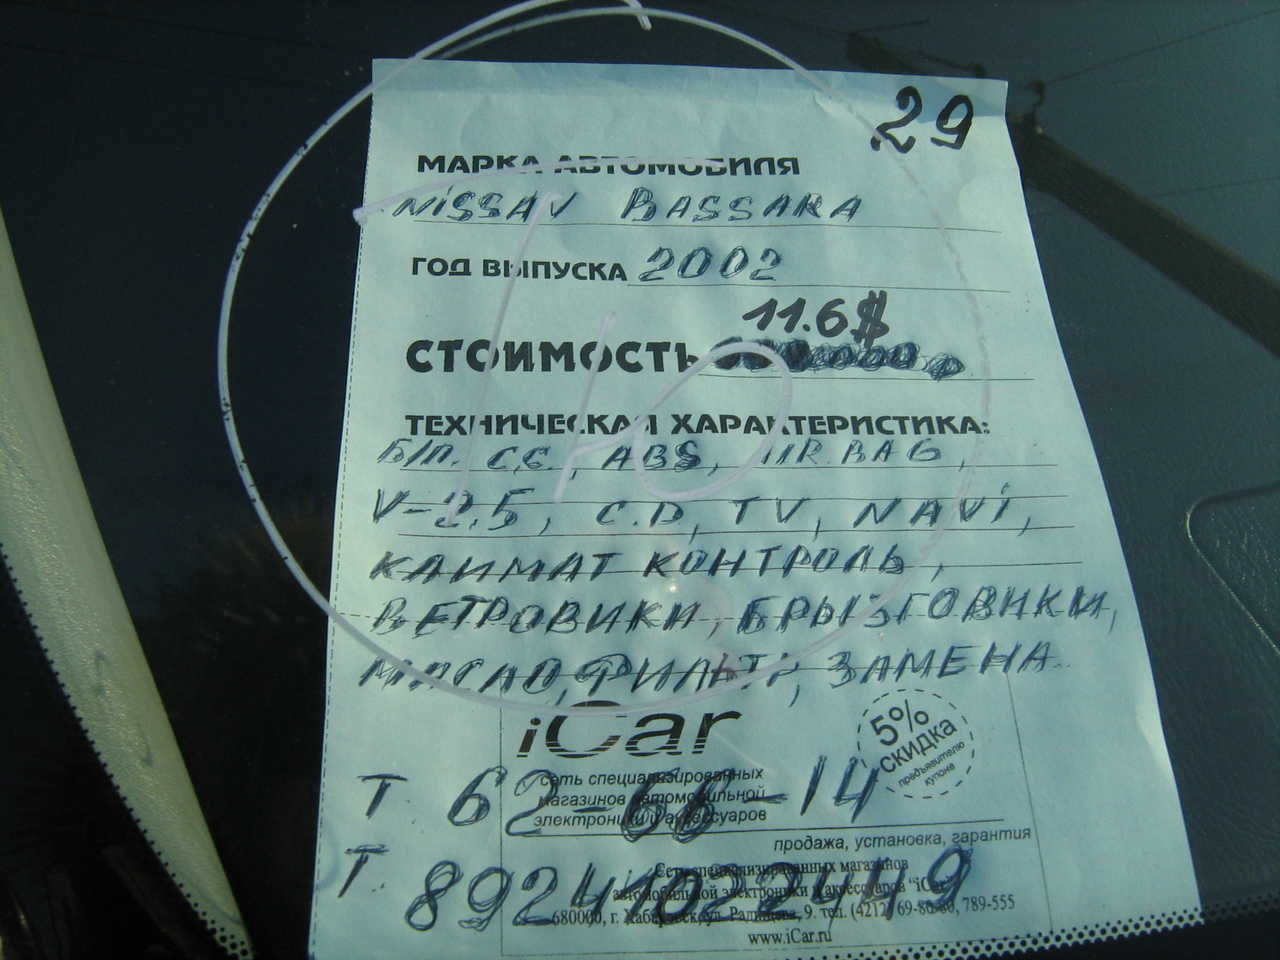 29
МАРКА АВТОМОБИЛЯ
NiSSAN BASSARA
ГОД ВЫПУСКА 2002
11.6$
СТОИМОСТЬ
ТЕХНИЧЕСКАЯ ХАРАКТЕРИСТИКА:
Б/П. С.С., ABS, AIR.BAG,
V-2,5, C.D, TV, NAVi,
КЛИМАТ КОНТРОЛЬ,
ВЕТРОВИКИ, БРЫЗГОВИКИ,
МАСЛО, ФИЛЬТР, ЗАМЕНА.
iCar
5%
СКИДКА
предъявителю
купона
сеть специализированных
магазинов автомобильной
электроники и аксессуаров
Т 62-66-14
продажа, установка, гарантия
Т. 89241022449
Сеть специализированных магазинов
автомобильной электроники и аксессуаров "iCar"
680000, г. Хабаровск, ул. Радищева, 9. тел. (4212) 69-80-80, 789-555
www.iCar.ru